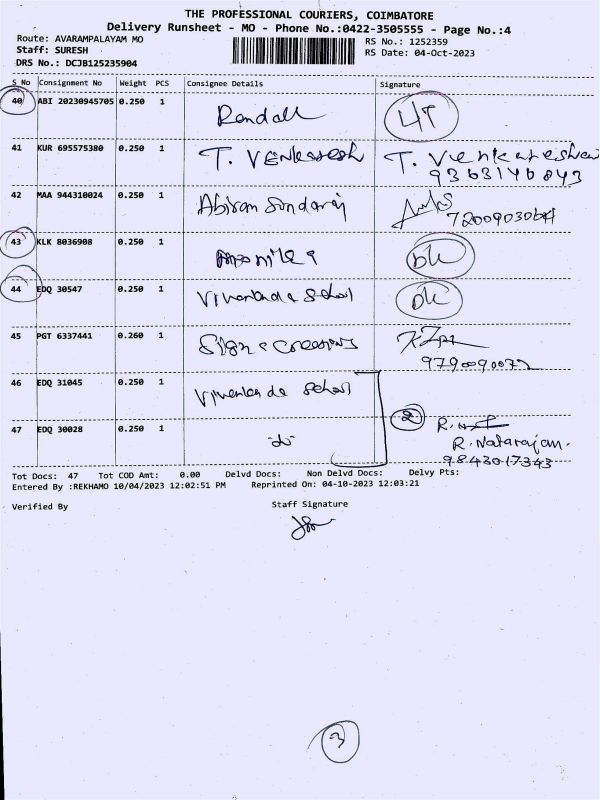 THE PROFESSIONAL COURIERS, COIMBATORE
Delivery Runsheet - MO - Phone No.:0422-3505555 - Page No.:4
Route: AVARAMPALAYAM MO
RS No.: 1252359
Staff: SURESH
RS Date: 04-Oct-2023
DRS No.: DCJB125235904
S No Consignment No Weight PCS Consignee Details Signature
40 ABI 20230945705 0.250 1 Randall
41 KUR 695575380 0.250 1 T. VENKATESH T. Venkateshan
9363146843
42 MAA 944310024 0.250 1 Abiram Sundaraj
43 KLK 8036908 0.250 1
44 EDQ 30547 0.250 1 School
45 PGT 6337441 0.260 1 Sign
9790090072
46 EDQ 31045 0.250 1 School
47 EDQ 30028 0.250 1 2
R. Natarajan.
9843017343
Tot Docs: 47 Tot COD Amt: 0.00 Delvd Docs: Non Delvd Docs: Delvy Pts:
Entered By :REKHAMO 10/04/2023 12:02:51 PM Reprinted On: 04-10-2023 12:03:21
Verified By Staff Signature
3